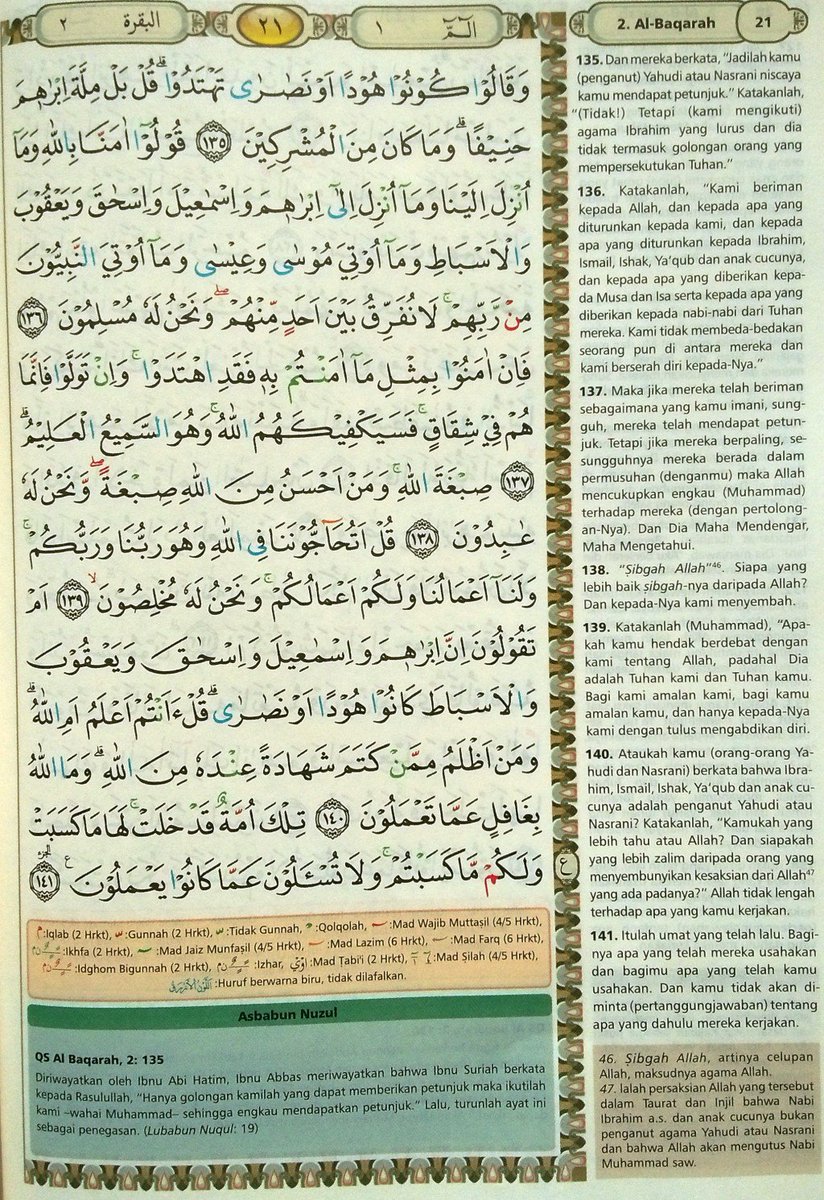 البقرة ٢
٢١
الٓمّٓ ١
2. Al-Baqarah 21
وَقَالُوْا كُوْنُوْا هُوْدًا اَوْ نَصٰرٰى تَهْتَدُوْا ۗ قُلْ بَلْ مِلَّةَ اِبْرٰهٖمَ
حَنِيْفًا ۗ وَمَا كَانَ مِنَ الْمُشْرِكِيْنَ ١٣٥ قُوْلُوْٓا اٰمَنَّا بِاللّٰهِ وَمَآ
اُنْزِلَ اِلَيْنَا وَمَآ اُنْزِلَ اِلٰٓى اِبْرٰهٖمَ وَاِسْمٰعِيْلَ وَاِسْحٰقَ وَيَعْقُوْبَ
وَالْاَسْبَاطِ وَمَآ اُوْتِيَ مُوْسٰى وَعِيْسٰى وَمَآ اُوْتِيَ النَّبِيُّوْنَ
مِنْ رَّبِّهِمْ ۚ لَا نُفَرِّقُ بَيْنَ اَحَدٍ مِّنْهُمْ ۖ وَنَحْنُ لَهٗ مُسْلِمُوْنَ ١٣٦
فَاِنْ اٰمَنُوْا بِمِثْلِ مَآ اٰمَنْتُمْ بِهٖ فَقَدِ اهْتَدَوْا ۚ وَاِنْ تَوَلَّوْا فَاِنَّمَا
هُمْ فِيْ شِقَاقٍ ۚ فَسَيَكْفِيْكَهُمُ اللّٰهُ ۚ وَهُوَ السَّمِيْعُ الْعَلِيْمُ ۗ
١٣٧ صِبْغَةَ اللّٰهِ ۚ وَمَنْ اَحْسَنُ مِنَ اللّٰهِ صِبْغَةً ۖ وَّنَحْنُ لَهٗ
عٰبِدُوْنَ ١٣٨ قُلْ اَتُحَاۤجُّوْنَنَا فِى اللّٰهِ وَهُوَ رَبُّنَا وَرَبُّكُمْ ۚ
وَلَنَآ اَعْمَالُنَا وَلَكُمْ اَعْمَالُكُمْ ۚ وَنَحْنُ لَهٗ مُخْلِصُوْنَ ۙ ١٣٩ اَمْ
تَقُوْلُوْنَ اِنَّ اِبْرٰهٖمَ وَاِسْمٰعِيْلَ وَاِسْحٰقَ وَيَعْقُوْبَ
وَالْاَسْبَاطَ كَانُوْا هُوْدًا اَوْ نَصٰرٰى ۗ قُلْ ءَاَنْتُمْ اَعْلَمُ اَمِ اللّٰهُ ۗ
وَمَنْ اَظْلَمُ مِمَّنْ كَتَمَ شَهَادَةً عِنْدَهٗ مِنَ اللّٰهِ ۗ وَمَا اللّٰهُ
بِغَافِلٍ عَمَّا تَعْمَلُوْنَ ١٤٠ تِلْكَ اُمَّةٌ قَدْ خَلَتْ ۚ لَهَا مَا كَسَبَتْ
وَلَكُمْ مَّا كَسَبْتُمْ ۚ وَلَا تُسْـَٔلُوْنَ عَمَّا كَانُوْا يَعْمَلُوْنَ ع ١٤١
ع
:Iqlab (2 Hrkt), :Gunnah (2 Hrkt), :Tidak Gunnah, :Qolqolah, :Mad Wajib Muttaṣil (4/5 Hrkt),
:Ikhfa (2 Hrkt), :Mad Jaiz Munfaṣil (4/5 Hrkt), :Mad Lazim (6 Hrkt), :Mad Farq (6 Hrkt),
:Idghom Bigunnah (2 Hrkt), :Izhar, :Mad Ṭabi'i (2 Hrkt), :Mad Ṣilah (4/5 Hrkt),
:Huruf berwarna biru, tidak dilafalkan.
Asbabun Nuzul
QS Al Baqarah, 2: 135
Diriwayatkan oleh Ibnu Abi Hatim, Ibnu Abbas meriwayatkan bahwa Ibnu Suriah berkata
kepada Rasulullah, “Hanya golongan kamilah yang dapat memberikan petunjuk maka ikutilah
kami –wahai Muhammad– sehingga engkau mendapatkan petunjuk.” Lalu, turunlah ayat ini
sebagai penegasan. (Lubabun Nuqul: 19)
135. Dan mereka berkata, “Jadilah kamu
(penganut) Yahudi atau Nasrani niscaya
kamu mendapat petunjuk.” Katakanlah,
“(Tidak!) Tetapi (kami mengikuti)
agama Ibrahim yang lurus dan dia
tidak termasuk golongan orang yang
mempersekutukan Tuhan.”
136. Katakanlah, “Kami beriman
kepada Allah, dan kepada apa yang
diturunkan kepada kami, dan kepada
apa yang diturunkan kepada Ibrahim,
Ismail, Ishak, Ya’qub dan anak cucunya,
dan kepada apa yang diberikan kepa-
da Musa dan Isa serta kepada apa yang
diberikan kepada nabi-nabi dari Tuhan
mereka. Kami tidak membeda-bedakan
seorang pun di antara mereka dan
kami berserah diri kepada-Nya.”
137. Maka jika mereka telah beriman
sebagaimana yang kamu imani, sung-
guh, mereka telah mendapat petun-
juk. Tetapi jika mereka berpaling, se-
sungguhnya mereka berada dalam
permusuhan (denganmu) maka Allah
mencukupkan engkau (Muhammad)
terhadap mereka (dengan pertolong-
an-Nya). Dan Dia Maha Mendengar,
Maha Mengetahui.
138. “Ṣibgah Allah”46. Siapa yang
lebih baik ṣibgah-nya daripada Allah?
Dan kepada-Nya kami menyembah.
139. Katakanlah (Muhammad), “Apa-
kah kamu hendak berdebat dengan
kami tentang Allah, padahal Dia
adalah Tuhan kami dan Tuhan kamu.
Bagi kami amalan kami, bagi kamu
amalan kamu, dan hanya kepada-Nya
kami dengan tulus mengabdikan diri.
140. Ataukah kamu (orang-orang Ya-
hudi dan Nasrani) berkata bahwa Ibra-
him, Ismail, Ishak, Ya’qub dan anak cu-
cunya adalah penganut Yahudi atau
Nasrani? Katakanlah, “Kamukah yang
lebih tahu atau Allah? Dan siapakah
yang lebih zalim daripada orang yang
menyembunyikan kesaksian dari Allah47
yang ada padanya?” Allah tidak lengah
terhadap apa yang kamu kerjakan.
141. Itulah umat yang telah lalu. Bagi-
nya apa yang telah mereka usahakan
dan bagimu apa yang telah kamu
usahakan. Dan kamu tidak akan di-
minta (pertanggungjawaban) tentang
apa yang dahulu mereka kerjakan.
46. Ṣibgah Allah, artinya celupan
Allah, maksudnya agama Allah.
47. Ialah persaksian Allah yang tersebut
dalam Taurat dan Injil bahwa Nabi
Ibrahim a.s. dan anak cucunya bukan
penganut agama Yahudi atau Nasrani
dan bahwa Allah akan mengutus Nabi
Muhammad saw.